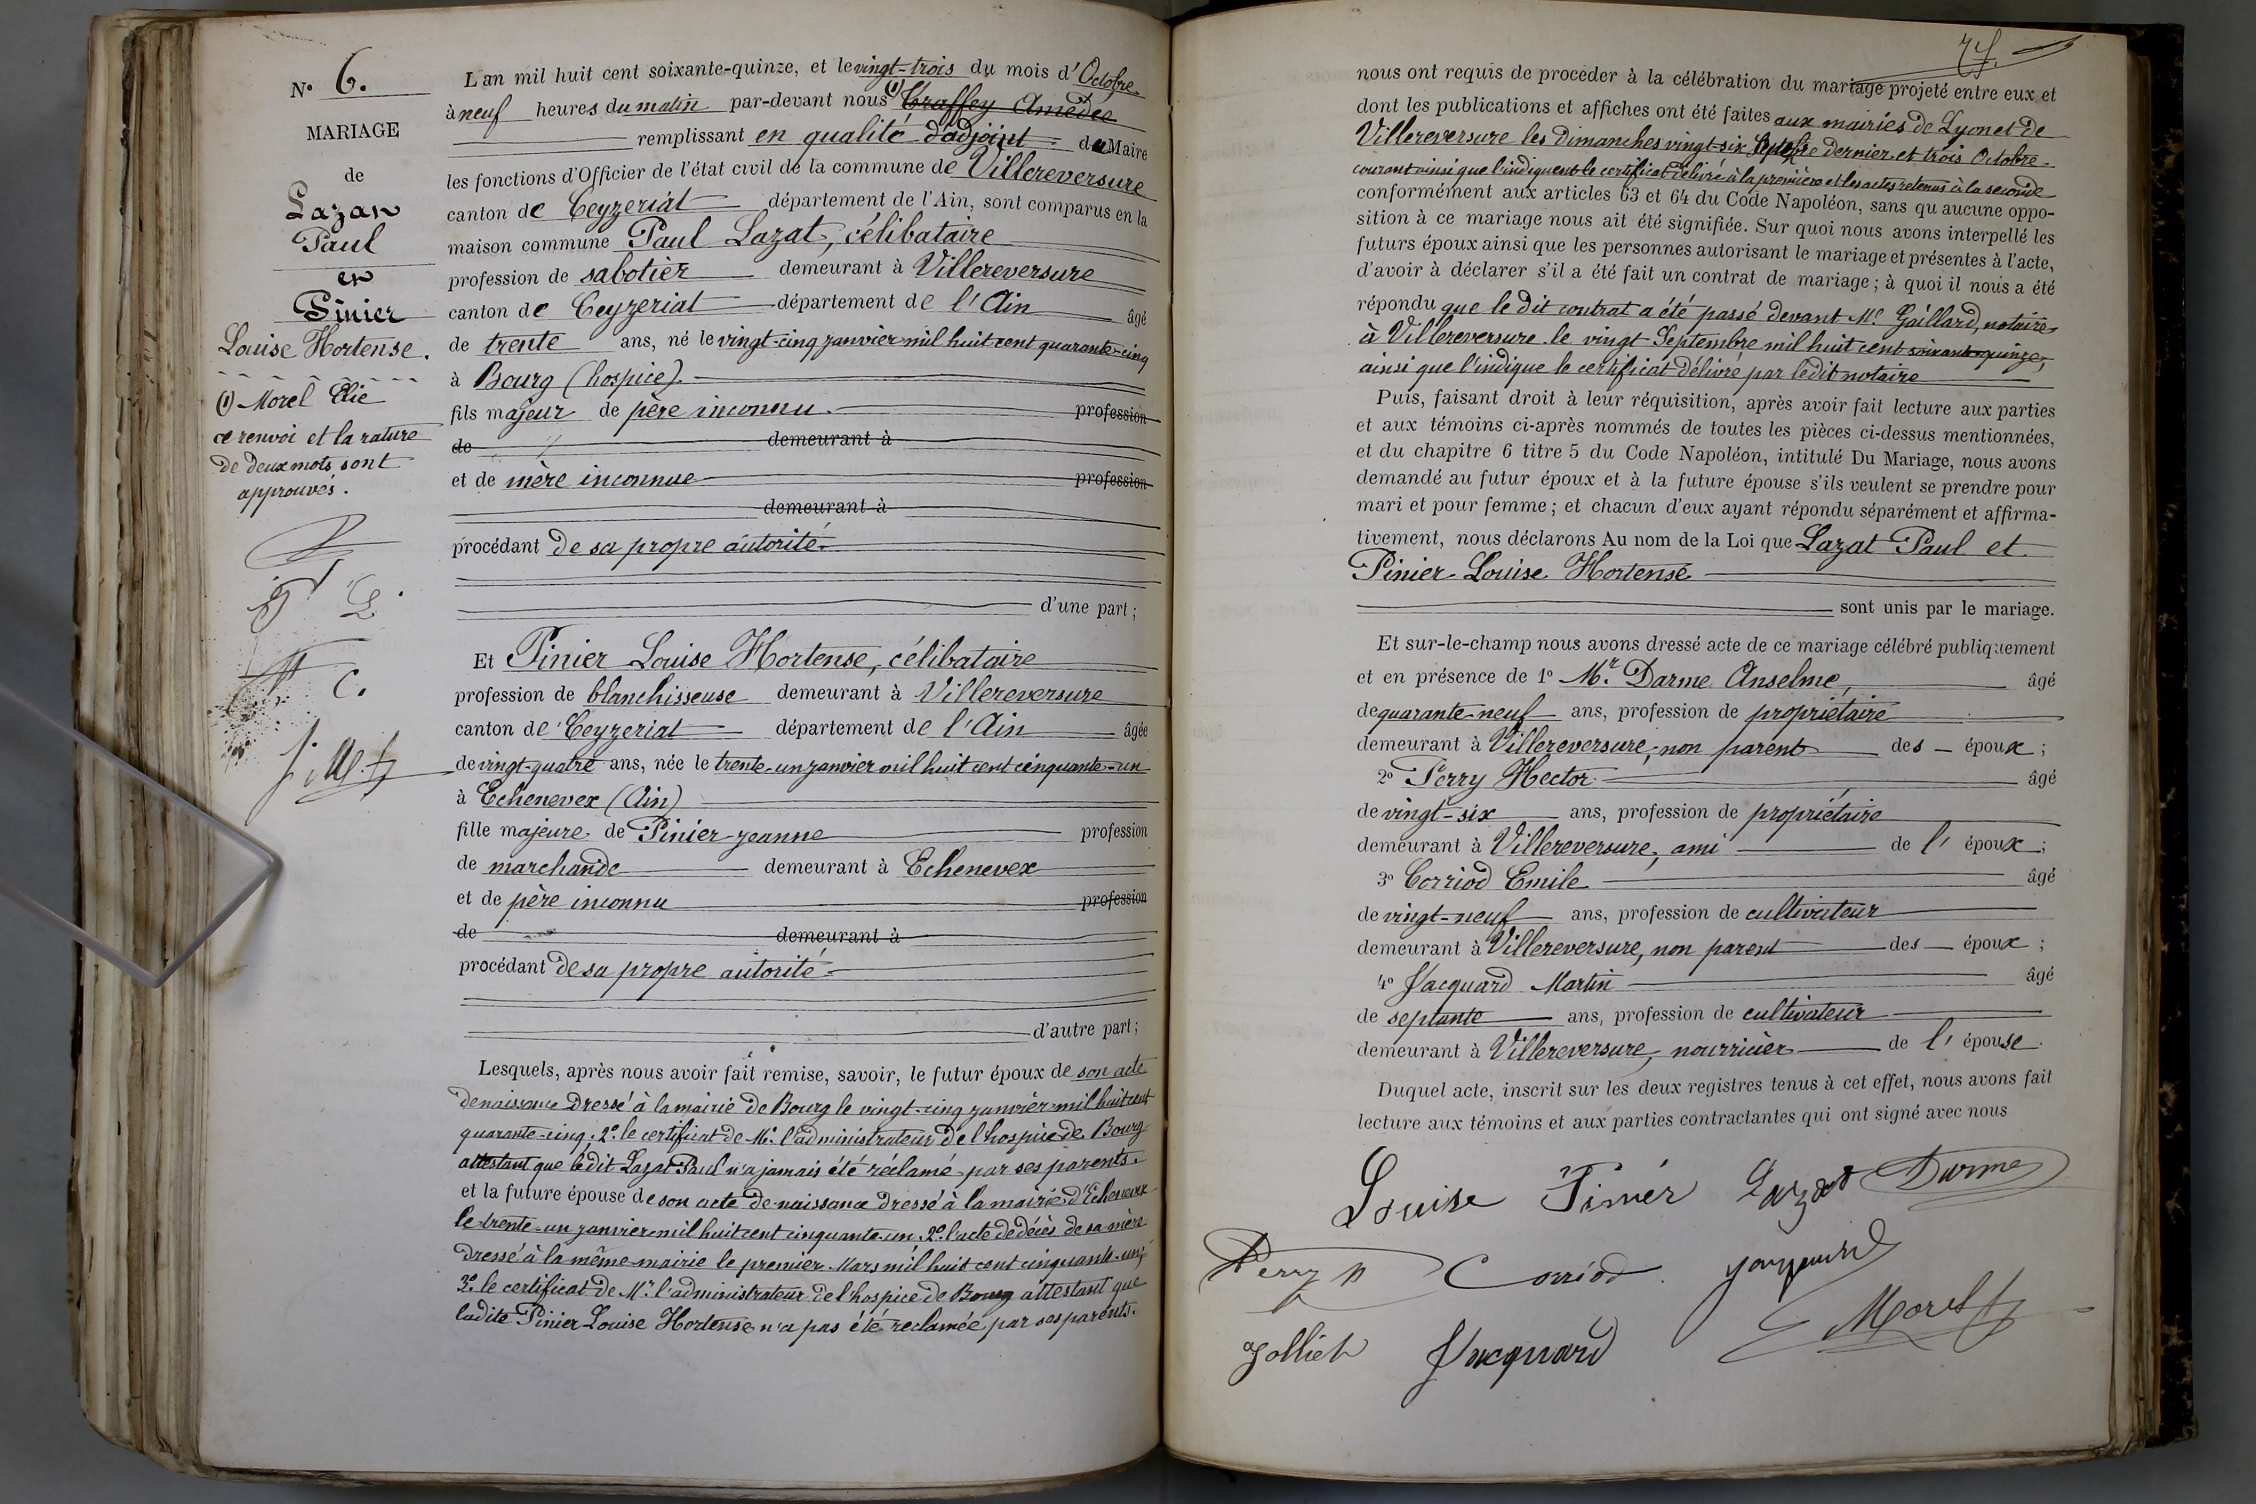 N° 6.
MARIAGE
de
Lazat
Paul
et
Pinier
Louise Hortense.
(1) Morel Elie
ce renvoi et la rature
de deux mots sont
approuvés.
L'an mil huit cent soixante-quinze, et le vingt-trois du mois d'Octobre
à neuf heures du matin par-devant nous (1) Traffey Amédée
remplissant en qualité d'adjoint du Maire
les fonctions d'Officier de l'état civil de la commune de Villereversure
canton de Ceyzeriat département de l'Ain, sont comparus en la
maison commune Paul Lazat, célibataire
profession de sabotier demeurant à Villereversure
canton de Ceyzeriat département de l'Ain âgé
de trente ans, né le vingt-cinq janvier mil huit cent quarante-cinq
à Bourg (hospice).
fils majeur de père inconnu. profession
de demeurant à
et de mère inconnue profession
demeurant à
procédant de sa propre autorité.
d'une part;
Et Pinier Louise Hortense, célibataire
profession de blanchisseuse demeurant à Villereversure
canton de Ceyzeriat département de l'Ain âgée
de vingt-quatre ans, née le trente-un janvier mil huit cent cinquante-un
à Echenevex (Ain)
fille majeure de Pinier Jeanne profession
de marchande demeurant à Echenevex
et de père inconnu profession
de demeurant à
procédant de sa propre autorité.
d'autre part;
Lesquels, après nous avoir fait remise, savoir, le futur époux de son acte
de naissance dressé à la mairie de Bourg le vingt-cinq janvier mil huit cent
quarante-cinq; 2° le certificat de Mr. l'administrateur de l'hospice de Bourg
attestant que ledit Lazat Paul n'a jamais été réclamé par ses parents.
et la future épouse de son acte de naissance dressé à la mairie d'Echenevex
le trente-un janvier mil huit cent cinquante-un 2° l'acte de décès de sa mère
dressé à la même mairie le premier Mars mil huit cent cinquante-un;
3° le certificat de Mr. l'administrateur de l'hospice de Bourg attestant que
ladite Pinier Louise Hortense n'a pas été reclamée par ses parents.
nous ont requis de procéder à la célébration du mariage projeté entre eux et
dont les publications et affiches ont été faites aux mairies de Lyon et de
Villereversure les Dimanches vingt-six Septembre dernier et trois Octobre
courant ainsi que l'indiquent le certificat délivré à la première et les actes retenus à la seconde
conformément aux articles 63 et 64 du Code Napoléon, sans qu'aucune oppo-
sition à ce mariage nous ait été signifiée. Sur quoi nous avons interpellé les
futurs époux ainsi que les personnes autorisant le mariage et présentes à l'acte,
d'avoir à déclarer s'il a été fait un contrat de mariage; à quoi il nous a été
répondu que le dit contrat a été passé devant Mr. Gaillard, notaire
à Villereversure le vingt Septembre mil huit cent soixante-quinze,
ainsi que l'indique le certificat délivré par ledit notaire
Puis, faisant droit à leur réquisition, après avoir fait lecture aux parties
et aux témoins ci-après nommés de toutes les pièces ci-dessus mentionnées,
et du chapitre 6 titre 5 du Code Napoléon, intitulé Du Mariage, nous avons
demandé au futur époux et à la future épouse s'ils veulent se prendre pour
mari et pour femme; et chacun d'eux ayant répondu séparément et affirma-
tivement, nous déclarons Au nom de la Loi que Lazat Paul et
Pinier Louise Hortense
sont unis par le mariage.
Et sur-le-champ nous avons dressé acte de ce mariage célébré publiquement
et en présence de 1° Mr. Darme Anselme, âgé
de quarante-neuf ans, profession de propriétaire
demeurant à Villereversure, non parent des époux;
2° Perry Hector âgé
de vingt-six ans, profession de propriétaire
demeurant à Villereversure, ami de l'époux;
3° Corriod Emile âgé
de vingt-neuf ans, profession de cultivateur
demeurant à Villereversure, non parent des époux;
4° Jacquard Martin âgé
de septante ans, profession de cultivateur
demeurant à Villereversure, nourricier de l'épouse.
Duquel acte, inscrit sur les deux registres tenus à cet effet, nous avons fait
lecture aux témoins et aux parties contractantes qui ont signé avec nous
Louise Pinier Lazat Darme
Perry H Corriod
Morel
Jolliet Jacquard